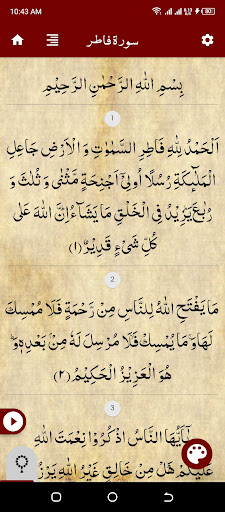 10:43 AM
سورة فاطر
بِسْمِ اللهِ الرَّحْمٰنِ الرَّحِيْمِ
1
اَلْحَمْدُ لِلّٰهِ فَاطِرِ السَّمٰوٰتِ وَ الْاَرْضِ جَاعِلِ
الْمَلٰٓىِٕكَةِ رُسُلًا اُولِیْۤ اَجْنِحَةٍ مَّثْنٰى وَ ثُلٰثَ وَ
رُبٰعَؕ یَزِیْدُ فِی الْخَلْقِ مَا یَشَآءُؕ اِنَّ اللهَ عَلٰى
كُلِّ شَیْءٍ قَدِیْرٌ (۱)
2
مَا یَفْتَحِ اللهُ لِلنَّاسِ مِنْ رَّحْمَةٍ فَلَا مُمْسِكَ
لَهَاۚ وَ مَا یُمْسِكْۙ فَلَا مُرْسِلَ لَهٗ مِنْۢ بَعْدِهٖؕ وَ
هُوَ الْعَزِیْزُ الْحَكِیْمُ (۲)
3
یٰۤاَیُّهَا النَّاسُ اذْكُرُوْا نِعْمَتَ اللهِ
عَلَیْكُمْؕ هَلْ مِنْ خَالِقٍ غَیْرُ اللهِ